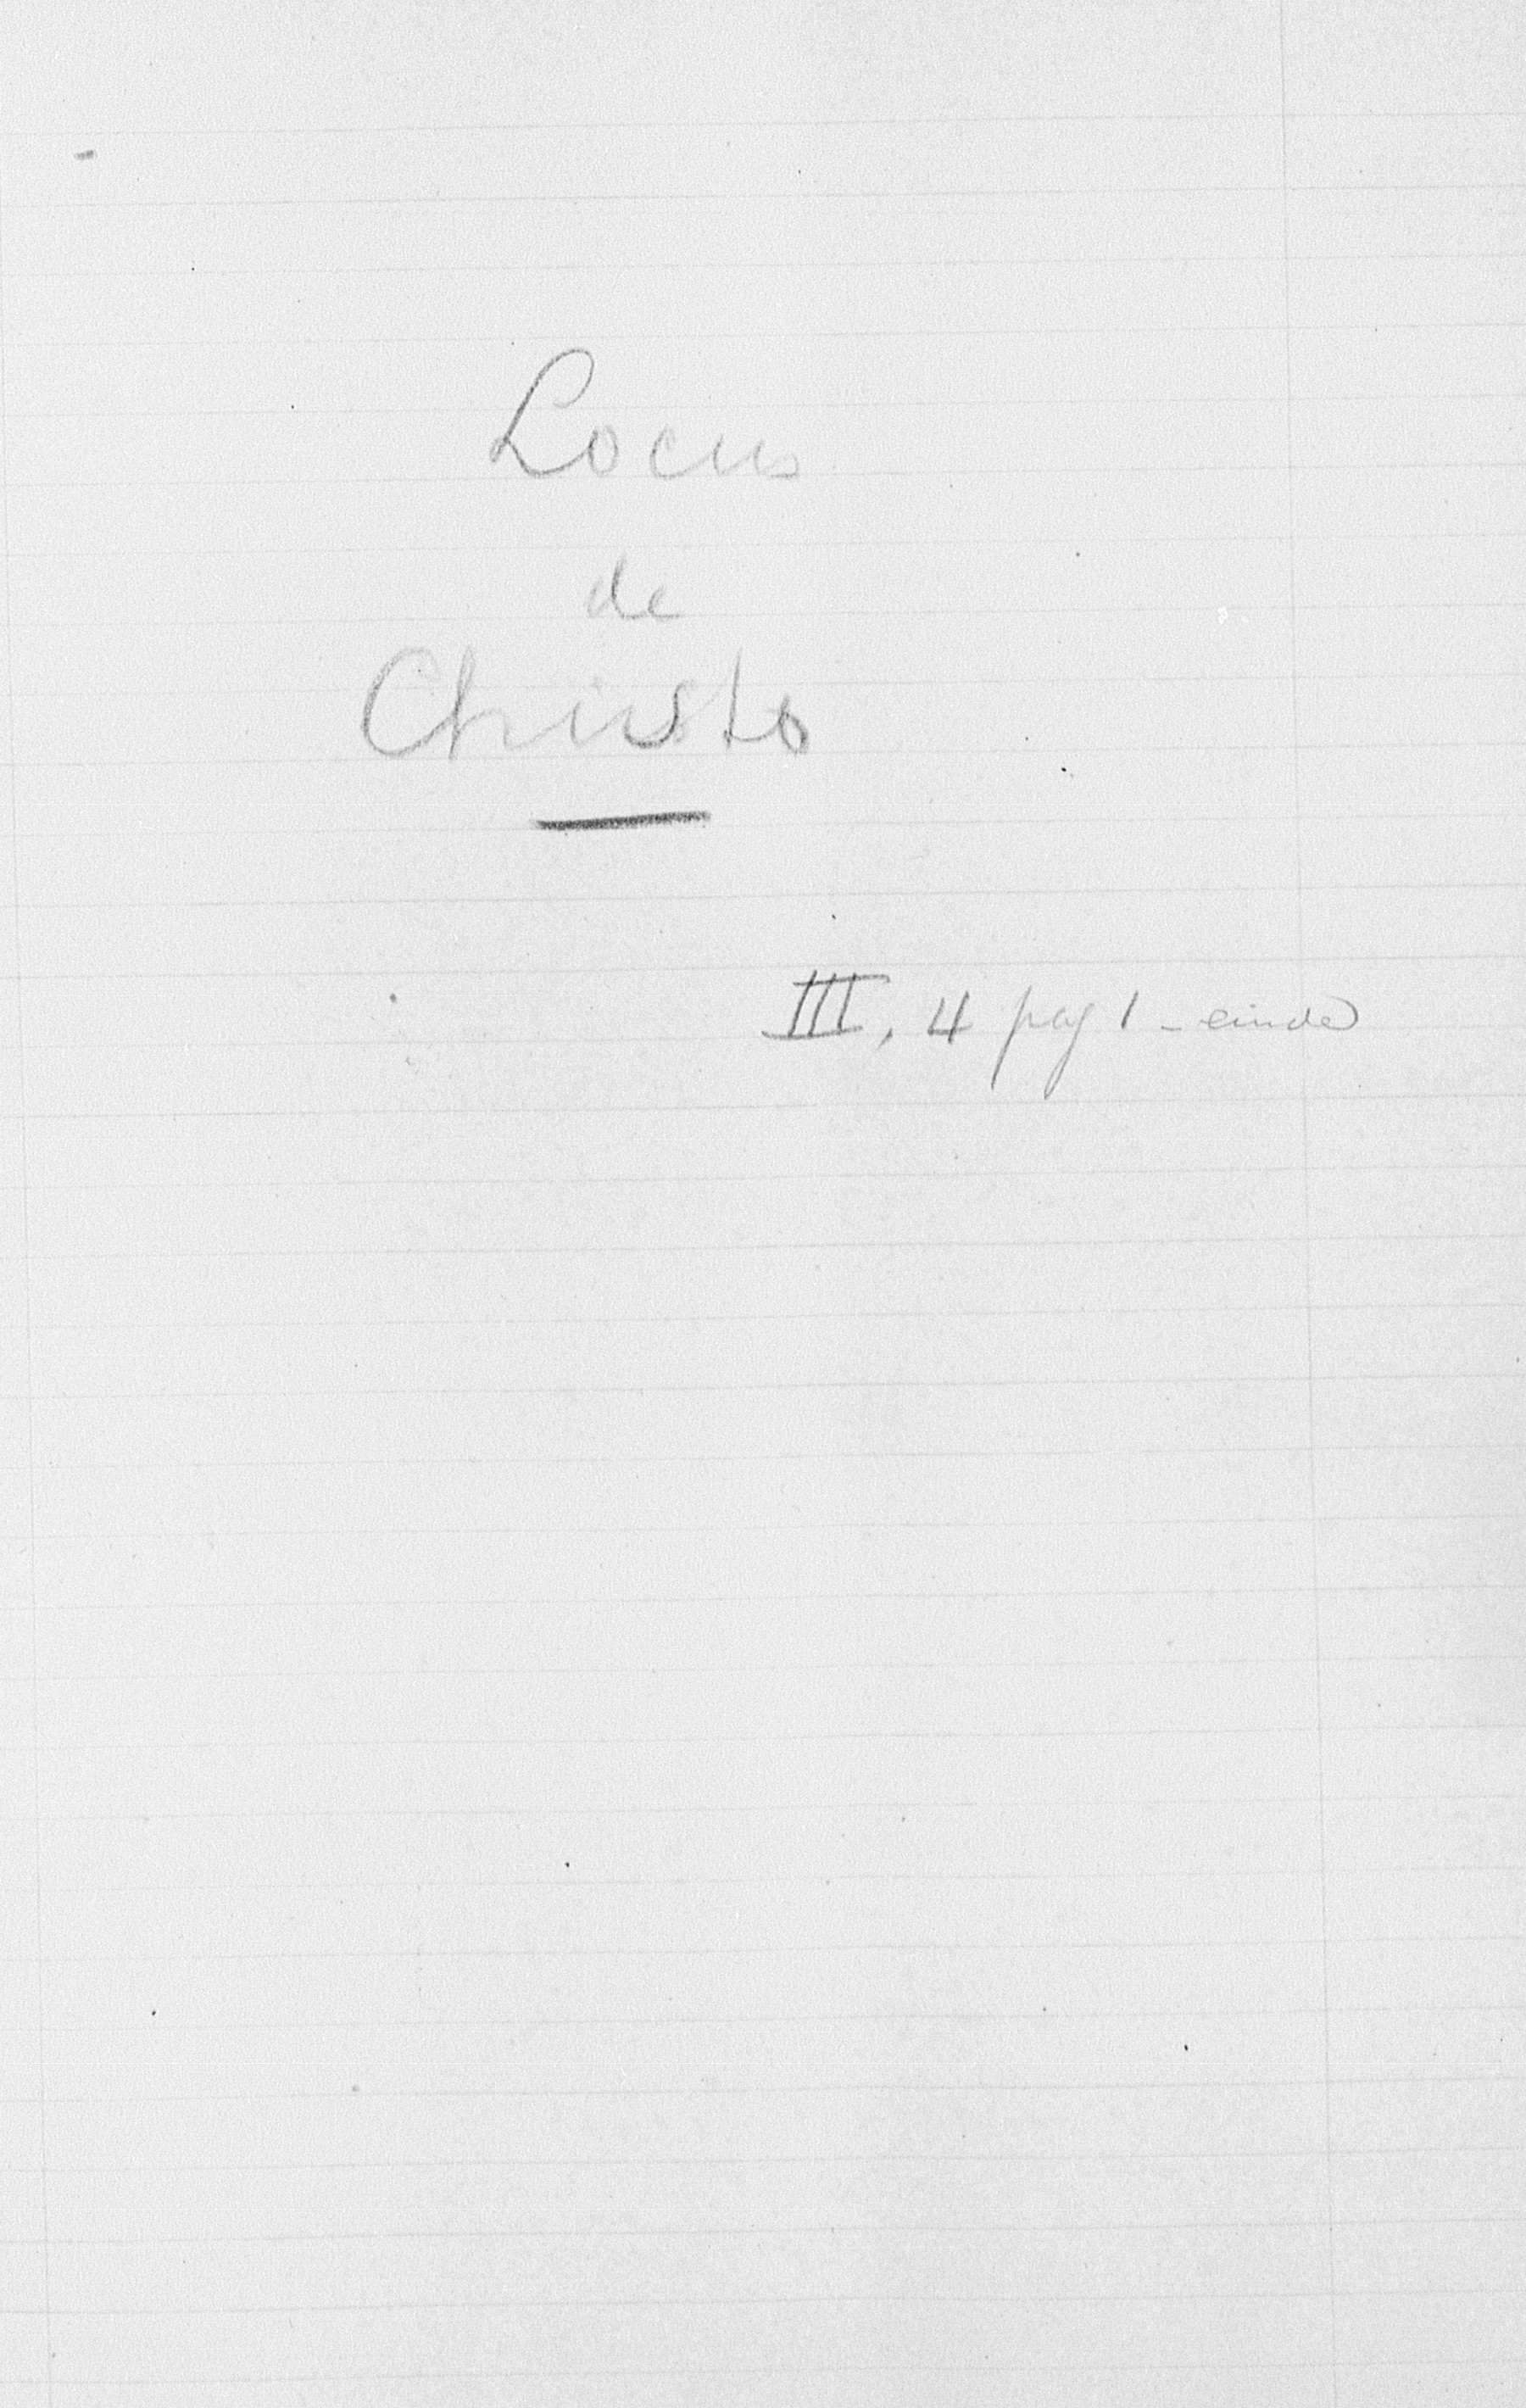 Locus
de
Christo
III, 4 pag 1 - einde